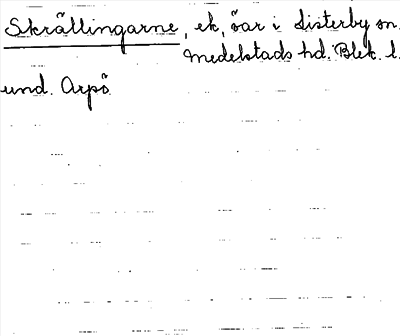 Skrällingarne, ek. öar i Listerby sn.
Medelstads hd. Blek. l.
und. Arpö